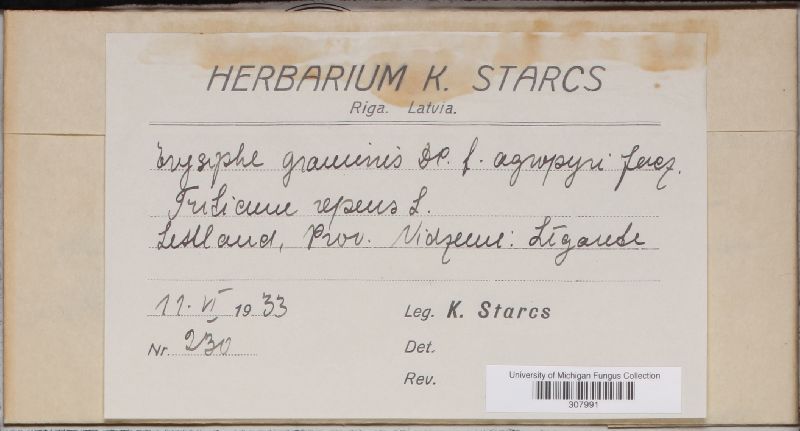 HERBARIUM K. STARCS
Riga. Latvia.
Erysiphe graminis DC. f. agropyri Jacz.
Triticum repens L.
Lettland, Prov. Vidzeme: Līgatne
11. VI 1933
Nr. 230
Leg. K. Starcs
Det.
Rev.
University of Michigan Fungus Collection
307991